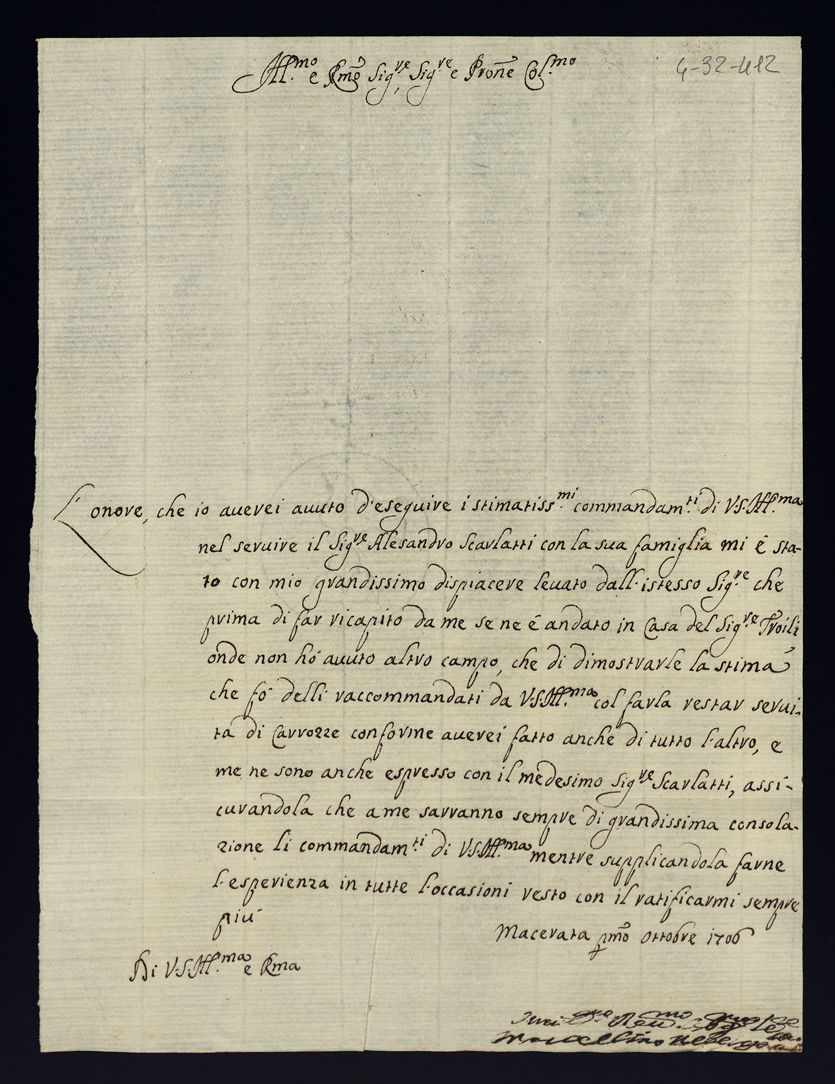 Ill.mo e Rmo Sig.re, Sig.re e Prone Col.mo
4-32-412
L'onore, che io auerei auuto d'eseguire i stimatiss.mi commandam.ti di V.S.Ill.ma
nel seruire il Sig.re Alesandro Scarlatti con la sua famiglia mi é sta-
to con mio grandissimo dispiacere leuato dall'istesso Sig.re che
prima di far ricapito da me se ne é andato in Casa del Sig.re Troili
onde non hó auuto altro campo, che di dimostrarle la stima
che fó delli raccommandati da V.S.Ill.ma col farla restar serui-
ta di Carrozze conforme auerei fatto anche di tutto l'altro, e
me ne sono anche espresso con il medesimo Sig.re Scarlatti, assi-
curandola che a me sarranno sempre di grandissima consola-
zione li commandam.ti di V.S.Ill.ma mentre supplicandola farne
l'esperienza in tutte l'occasioni resto con il ratificarmi sempre
piú
Macerata pmo Ottobre 1706
Di V.S.Ill.ma e Rma